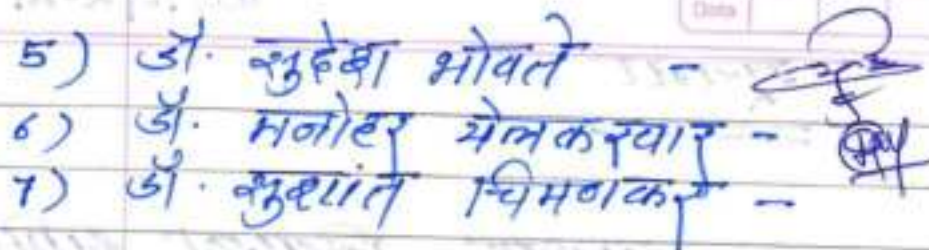 Date
5) डॉ. सुदेश भोवते -
6) डॉ. मनोहर येलकरवार -
7) डॉ. सुशांत चिमणकर -